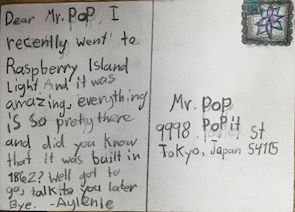 Dear Mr. Pop, I
recently went to
Raspberry Island
Light And it was
amazing, everything
is so pretty there
and did you know
that it was built in
1862? Well got to
go, talk to you later
Bye. -Aylenie
Mr. Pop
9998 PoPit St
Tokyo, Japan 54115